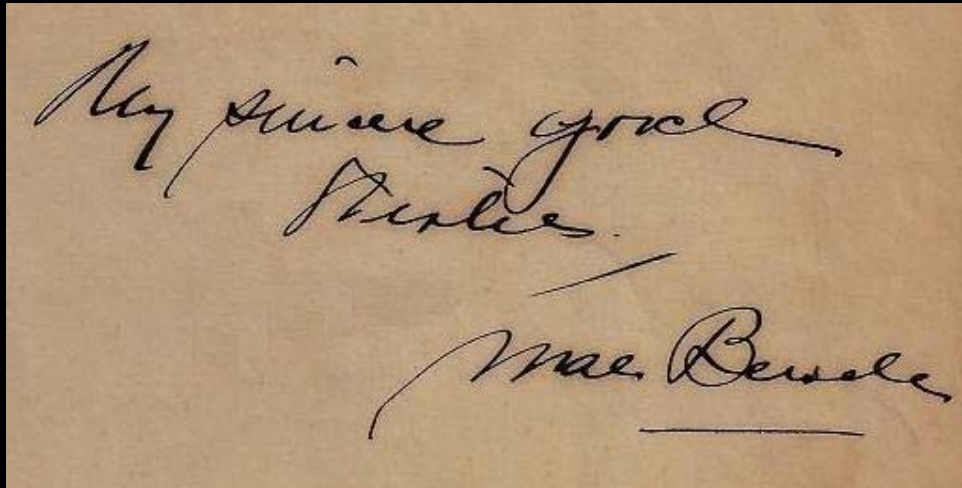 My sincere good
Wishes.
Mae